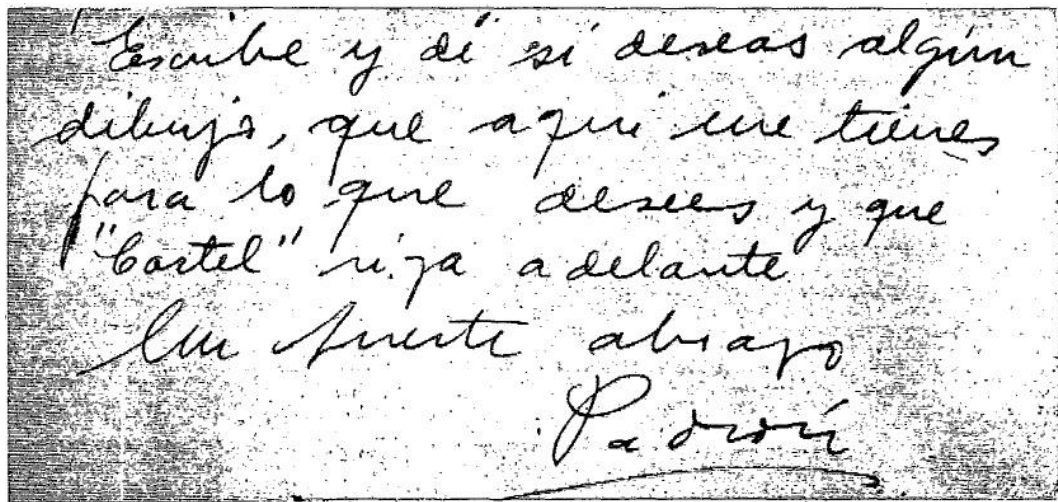 Escribe y dí si deseas algún
dibujo, que aqui me tienes
para lo que desees y que
"Cartel" siga adelante
Un fuerte abrazo
Padrón